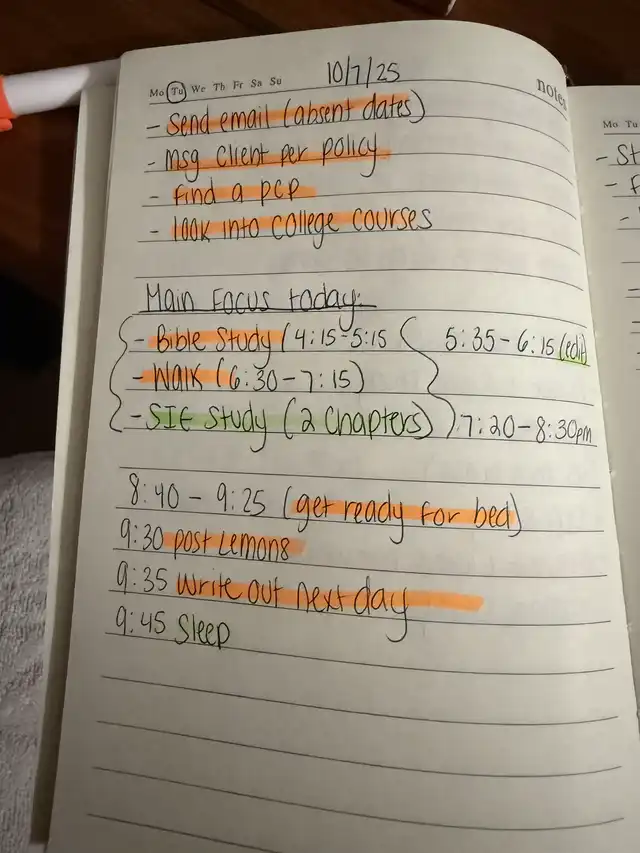 10/7/25
Mo Tu We Th Fr Sa Su
notes
- Send email (absent dates)
- msg client per policy
- find a pcp
- look into college courses
Main Focus today:
- Bible Study (4:15-5:15 5:35-6:15 (edit)
- Walk (6:30-7:15)
- SIE Study (2 Chapters) 7:20-8:30pm
8:40 - 9:25 (get ready for bed)
9:30 post Lemon8
9:35 Write out next day
9:45 Sleep
Mo Tu
- St